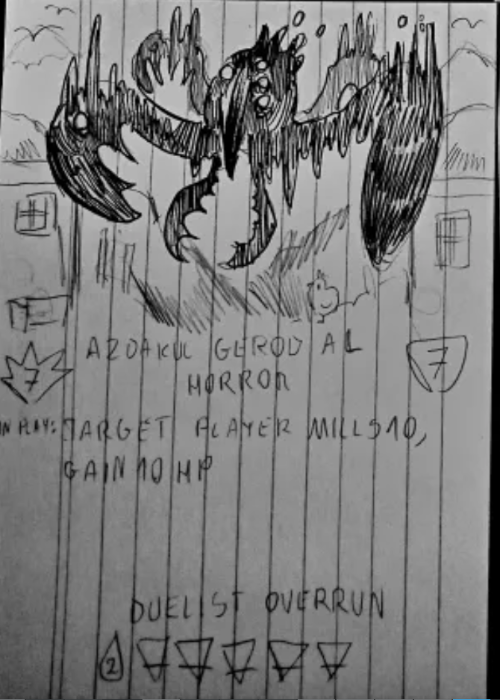 7 AZOAKUL GEROD AL 7
HORROR
IN PLAY: TARGET PLAYER MILLS 10,
GAIN 10 HP
DUELIST OVERRUN
2